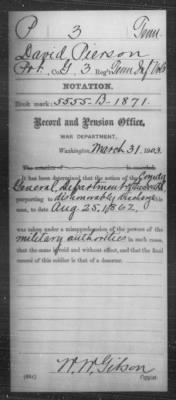 P 3 Tenn
David Pierson
Pvt., Co. G, 3 Reg't Tenn Inf Vols
NOTATION.
Book mark: 5555-B-1871.
Record and Pension Office,
WAR DEPARTMENT,
Washington, March 31, 1903.
It has been determined that the action of the Comdg
General, Department of the
purporting to dishonorably discharge this
man, to date Aug. 25, 1862,
was taken under a misapprehension of the powers of the
military authorities in such cases,
that the same is void and without effect, and that the final
record of this soldier is that of a deserter.
W. W. Gibson
Copyist.